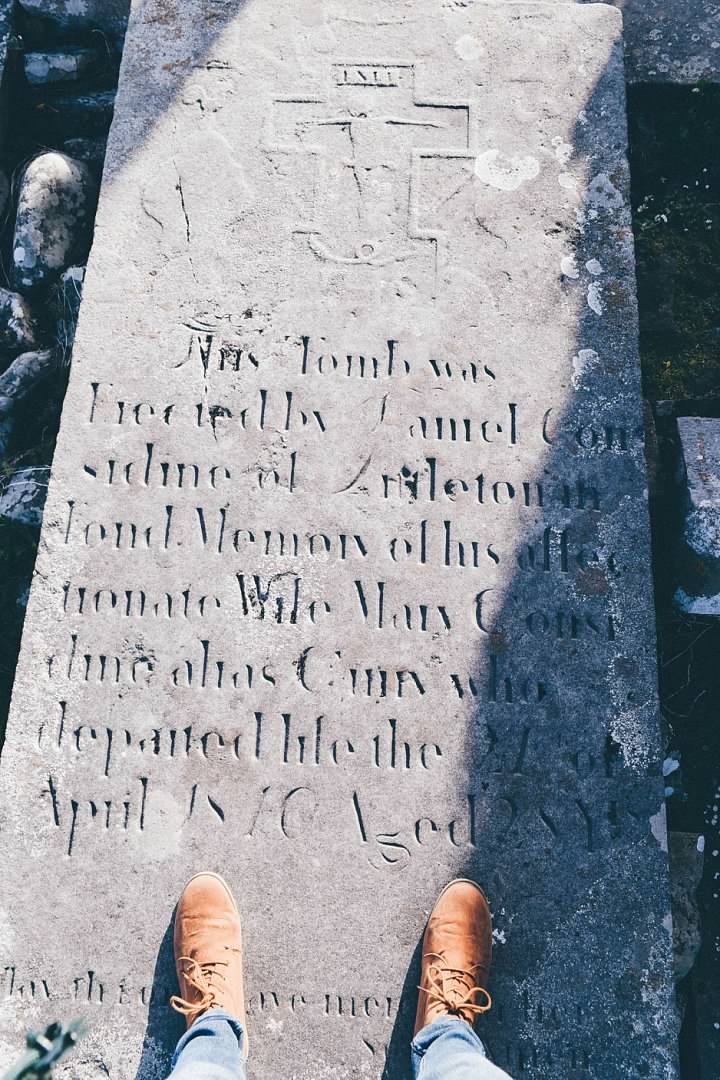 This Tomb was
Erected by Daniel Con
sidine of Littleton in
Fond Memory of his affec
tionate Wife Mary Consi
dine alias who
departed life the of
April 18 Aged 28 Yrs
have mercy on her